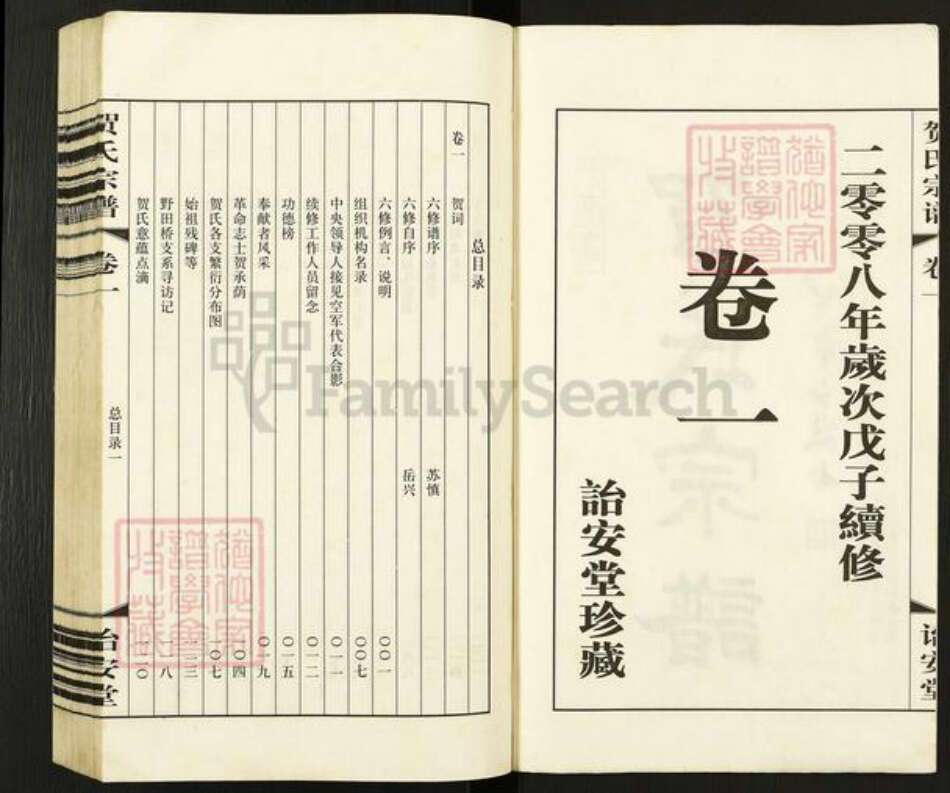 贺氏宗谱
卷一
二零零八年歲次戊子續修
卷一
詒安堂珍藏
总目录
卷一
贺词
六修谱序 苏慎
六修自序 岳兴
六修例言、说明 〇〇一
组织机构名录 〇〇七
中央领导人接见空军代表合影 〇一一
续修工作人员留念 〇一二
功德榜 〇一五
奉献者风采 〇一九
革命志士贺承荫 一〇四
贺氏各支繁衍分布图 一〇七
始祖残碑等 一一三
野田桥支系寻访记 一一八
贺氏意蕴点滴 一二〇
贺氏宗谱
卷一
总目录一
诒安堂
FamilySearch